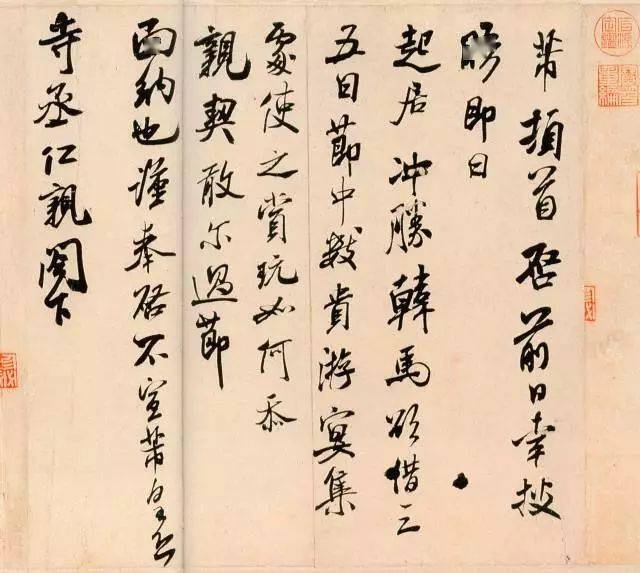 芾頓首啓前日幸披
晤即日
起居沖勝韓馬欲借三
五日節中數貴游宴集
處使之賞玩如何忝
親契敢尔過節
面納也謹奉啓不宣芾皇恐
寺丞仁親閣下